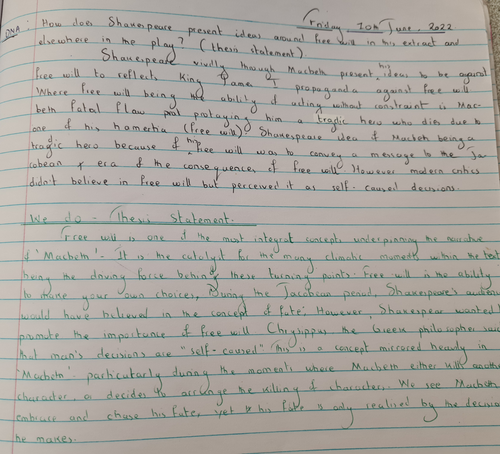 Friday, 20th June, 2022
DNA: How does Shakespeare present ideas around free will in his extract and
elsewhere in the play? (thesis statement)
Shakespeare vividly through Macbeth present, his ideas to be against
free will to reflects King James I propaganda against free will
Where free will being the ability of acting without constraint is Mac-
beth fatal flaw protraying him a tragic hero who dies due to
one of his hamertia (free will) Shakespeare idea of Macbeth being a
tragic hero because of his free will was to convey a message to the Ja-
cobean era of the consequences of free will However modern critics
didn't believe in free will but perceived it as self-caused decisions.
We do - Thesis Statement.
Free will is one of the most integral concepts underpinning the narrative
of 'Macbeth'- It is the catalyst for the many climatic moments within the text
being the driving force behind these turning points. Free will is the ability
to make your own choices, During the Jacobean period, Shakespeare's audience
would have believed in the concept of fate. However, Shakespear wanted to
promote the importance of free will Chrysippus the Greek philosopher said
that man's decisions are "self-caused" This is a concept mirrored heavily in
'Macbeth'. particularly during the moments where Macbeth either kills another
character, or decides to arrange the killing of characters. We see Macbeth
embrace and chase his fate, yet his fate is only realised by the decisions
he makes.